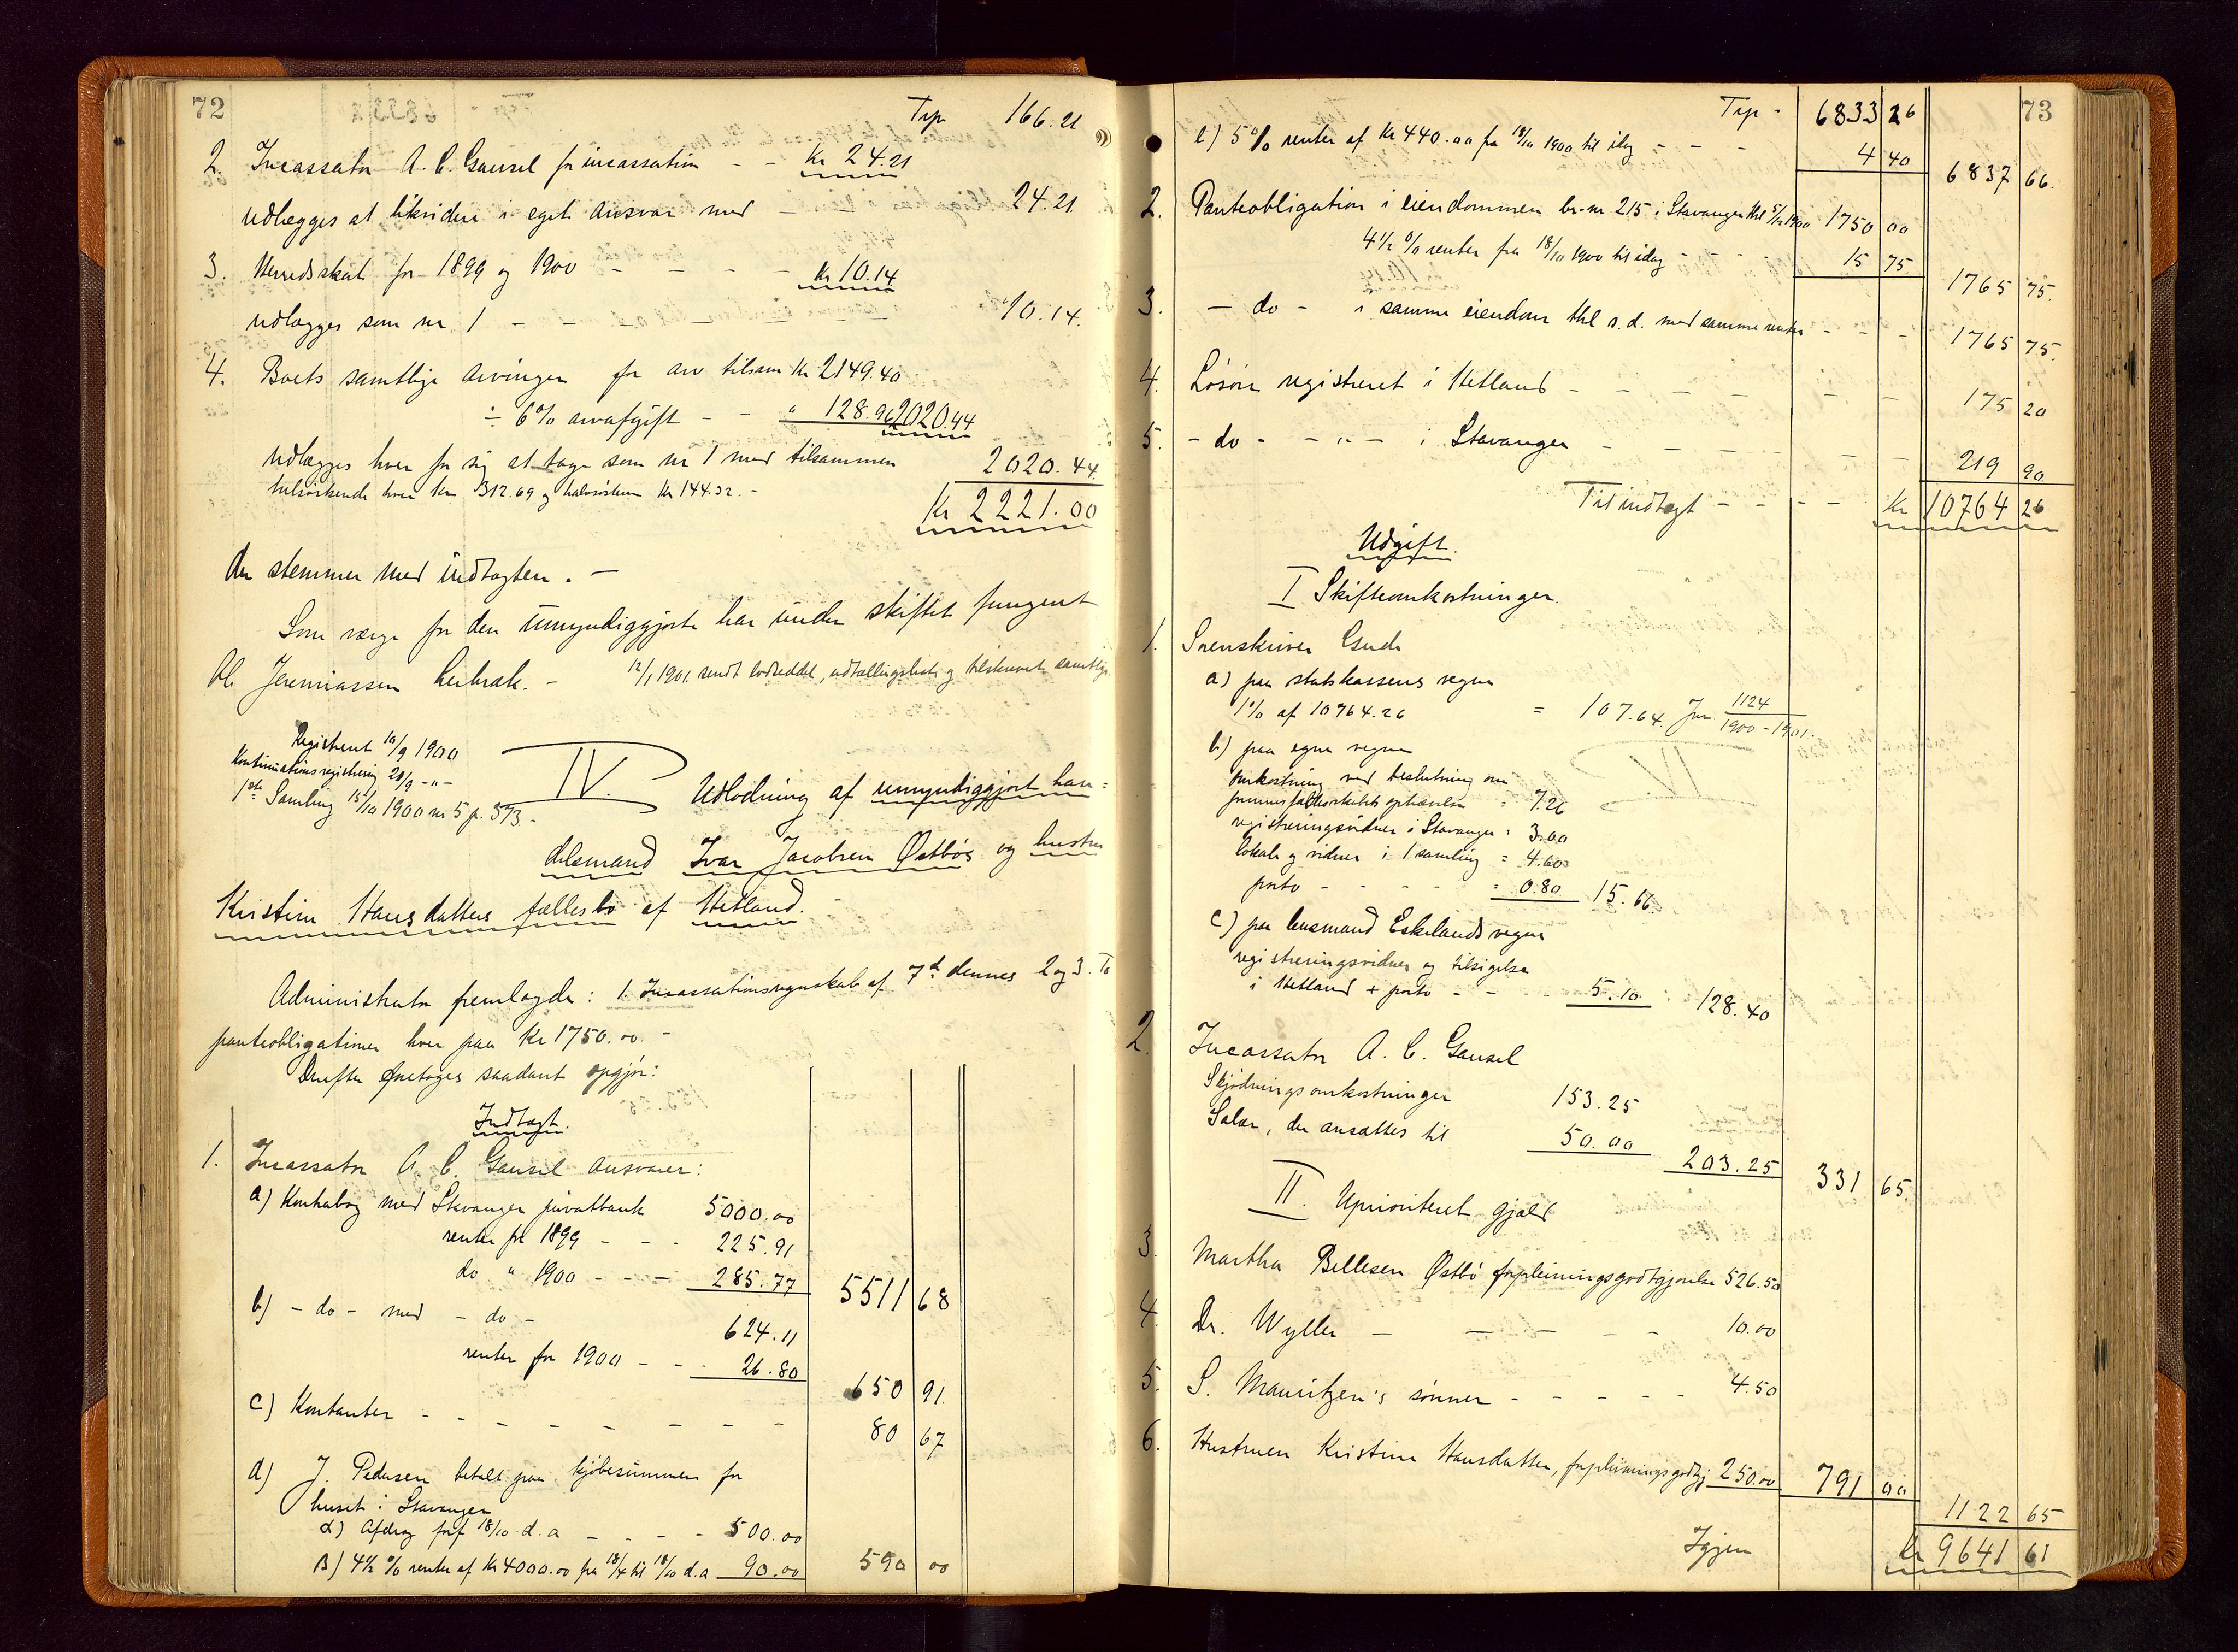 72
Trp 166.21
2. Incassator A. C. Gausel for incassation - - Kr 24.21
Udlægges at likvidere i eget ansvar med - 24.21
3. Herredsskat for 1899 og 1900 - - - - Kr 10.14
Udlægges som nr 1 - - - - 10.14.
4. Boets samtlige arvinger for arv tilsam. Kr 2149.40
÷ 6% arvafgift - - " 128.96 2020.44
Udlægges hver for sig at tage som nr 1 med tilsammen 2020.44
helsøskende hver kr 312.69 og halvsøsken Kr 144.32. -
Kr 2221.00
der stemmer med indtægten. -
Som værge for den umyndiggjorte har under skiftet fungeret
Ol. Jeremiassen Leibrak. - 12/1 1901 sendt lodseddel, udtællingsliste og tilskrevet samtlige
Registreret 10/9 1900
Kontinuationsregistrering 20/9 -"-
1ste Samling 15/10 1900 nr 5 p. 373. -
IV. Udlodning af umyndiggjort han=
delsmand Ivar Jacobsen Østbøs og hustru
Kristine Hansdatters fællesbo af Hetland.
Administrator fremlagde: 1. Incassationsregnskab af 7de dennes 2 og 3. To
panteobligationer hver paa Kr 1750.00 -
Derefter foretoges saadant opgjør:
Indtægt.
1. Incassator A. C. Gausel ansvarer:
a) Kontrabog med Stavanger privatbank 5000.00
renter for 1899 - - - 225.91
do " 1900 - - - 285.77 5511 68
b) - do - med - do - 624.11
renter for 1900 - - - 26.80
650 91.
c) Kontanter - - - - - - - - 80 67
d) J. Pedersen betalt paa kjøbesummen for
huset i Stavanger
α) Afdrag forf 18/10 d.a - - - - 500.00
β) 4½ % renter af Kr 4000.00 fra 18/4 til 18/10 d.a 90.00 590 00
73
Trp - 6833 26
e) 5% renter af Kr 440.00 fra 18/10 1900 til idag - - - 4 40
6837 66.
2. Panteobligation i eiendommen br-nr 215 i Stavanger thl 5/12 1900 1750 00
4½ % renter fra 18/10 1900 til idag - - - 15 75.
1765 75.
3. - do - i samme eiendom thl s.d. med samme renter - - - 1765 75.
4. Løsøre registreret i Hetland - - - - - - - 175 20
5. - do - - " - i Stavanger - - - - - - 219 90
Til indtægt - - - - Kr 10764 26
Udgift.
I Skifteomkostninger.
1. Sorenskriver Gude
a) paa statskassens vegne
1% af 10764.26 = 107.64. Jnr. 1124/1900-1901.
b) paa egne vegne
omkostning ved beslutning om
formuesfællesskabets ophævelse = 7.26
registreringsvidner i Stavanger = 3.00
lokale og vidner i 1 samling = 4.60
porto - - - - = 0.80 15.66
c) paa lensmand Eskelands vegne
registreringsvidner og tilsigelse
i Hetland + porto - - - 5.10 128.40
2. Incassator A. C. Gausel
Skjødningsomkostninger 153.25
Salær, der ansættes til 50.00 203.25 331 65.
II. Uprioriteret gjæld
3. Martha Bellesen Østbø forpleiningsgodtgjørelse 526.50
4. Dr. Wyller - - - - - 10.00
5. S. Mauritzen's sønner - - - - - 4.50
6. Hustruen Kristine Hansdatter, forpleiningsgodtgj 250.00 791 00
1122 65
Igjen Kr 9641 61